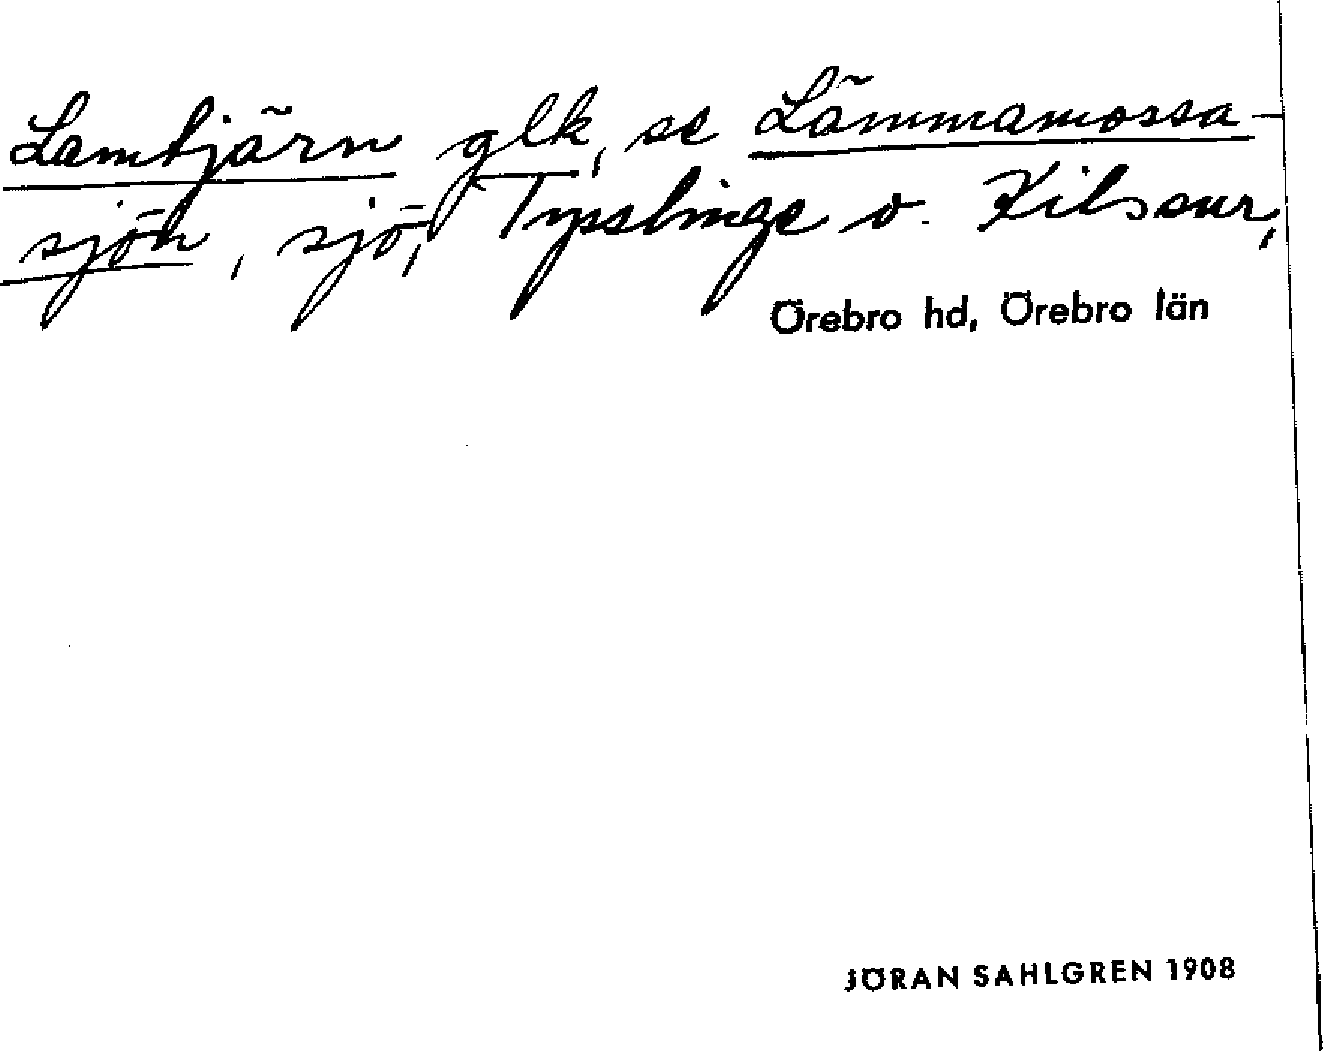 Lamtjärn glk, se Lämmamossa-
sjön, sjö, Tysslinge o. Kilssnr,
Örebro hd, Örebro län
JÖRAN SAHLGREN 1908